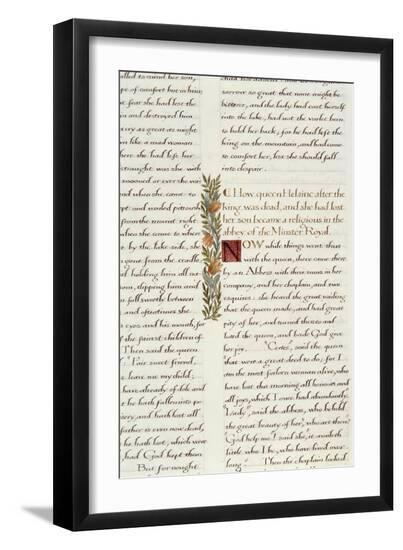 alled to mind her son,
ope of comfort but in him;
feat she had lost the
and destroyed him
ery as great as might
n like a mad woman
here she had left her
straught was she with
swooned or ever she was
nd when she came to
ept and wailed piteously
from the mount right
when she came to where
by the lake-side, she
gone from the cradle
d holding him all na-
om, clipping him and
n full sweetly between
and oftentimes she
eyes and his mouth, for
f the fairest children of
Then said the queen
"Fair sweet friend,
e, leave me my child;
have already of dole and
t he hath fallen into po-
erry, and hath lost all
father is even now dead,
he hath lost, which were
had God kept them
But for nought
sorrow so great that none might be
bitterer, and the lady had cast herself
into the lake, had not the varlet been
to hold her back; for he had left the
king on the mountain, and had come
to comfort her, lest she should fall
into despair.
How queen Helaine after the
king was dead, and she had lost
her son became a religious in the
abbey of the Minster Royal.
NOW while things went thus
with the queen, there came there
by an Abbess with three nuns in her
company, and her chaplain, and two
esquires: she heard the great wailing
that the queen made, and had great
pity of her, and turned thereto and
hard the queen, and bade God give
her joy. "Certes," said the queen
"that were a great deed to do; for I
am the most forlorn woman alive, who
have lost this morning all honours and
all joys, which I once had abundantly."
"Lady," said the abbess, who beheld
the great beauty of her, "who are then?"
"God help me!" said she, "it mattereth
little who I be, who have lived over
long." Then the chaplain looked